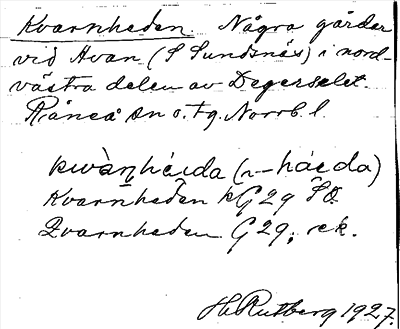 Kvarnheden. Några gårdar
vid Avan (S Sundsnäs) i nord-
västra delen av Degerselet.
Råneå sn o. tg. Norrb. l.
(n-håeda)
Kvarnheden kG 29 SO
Qvarnheden G 29; ek.
H. Rutberg 1927.